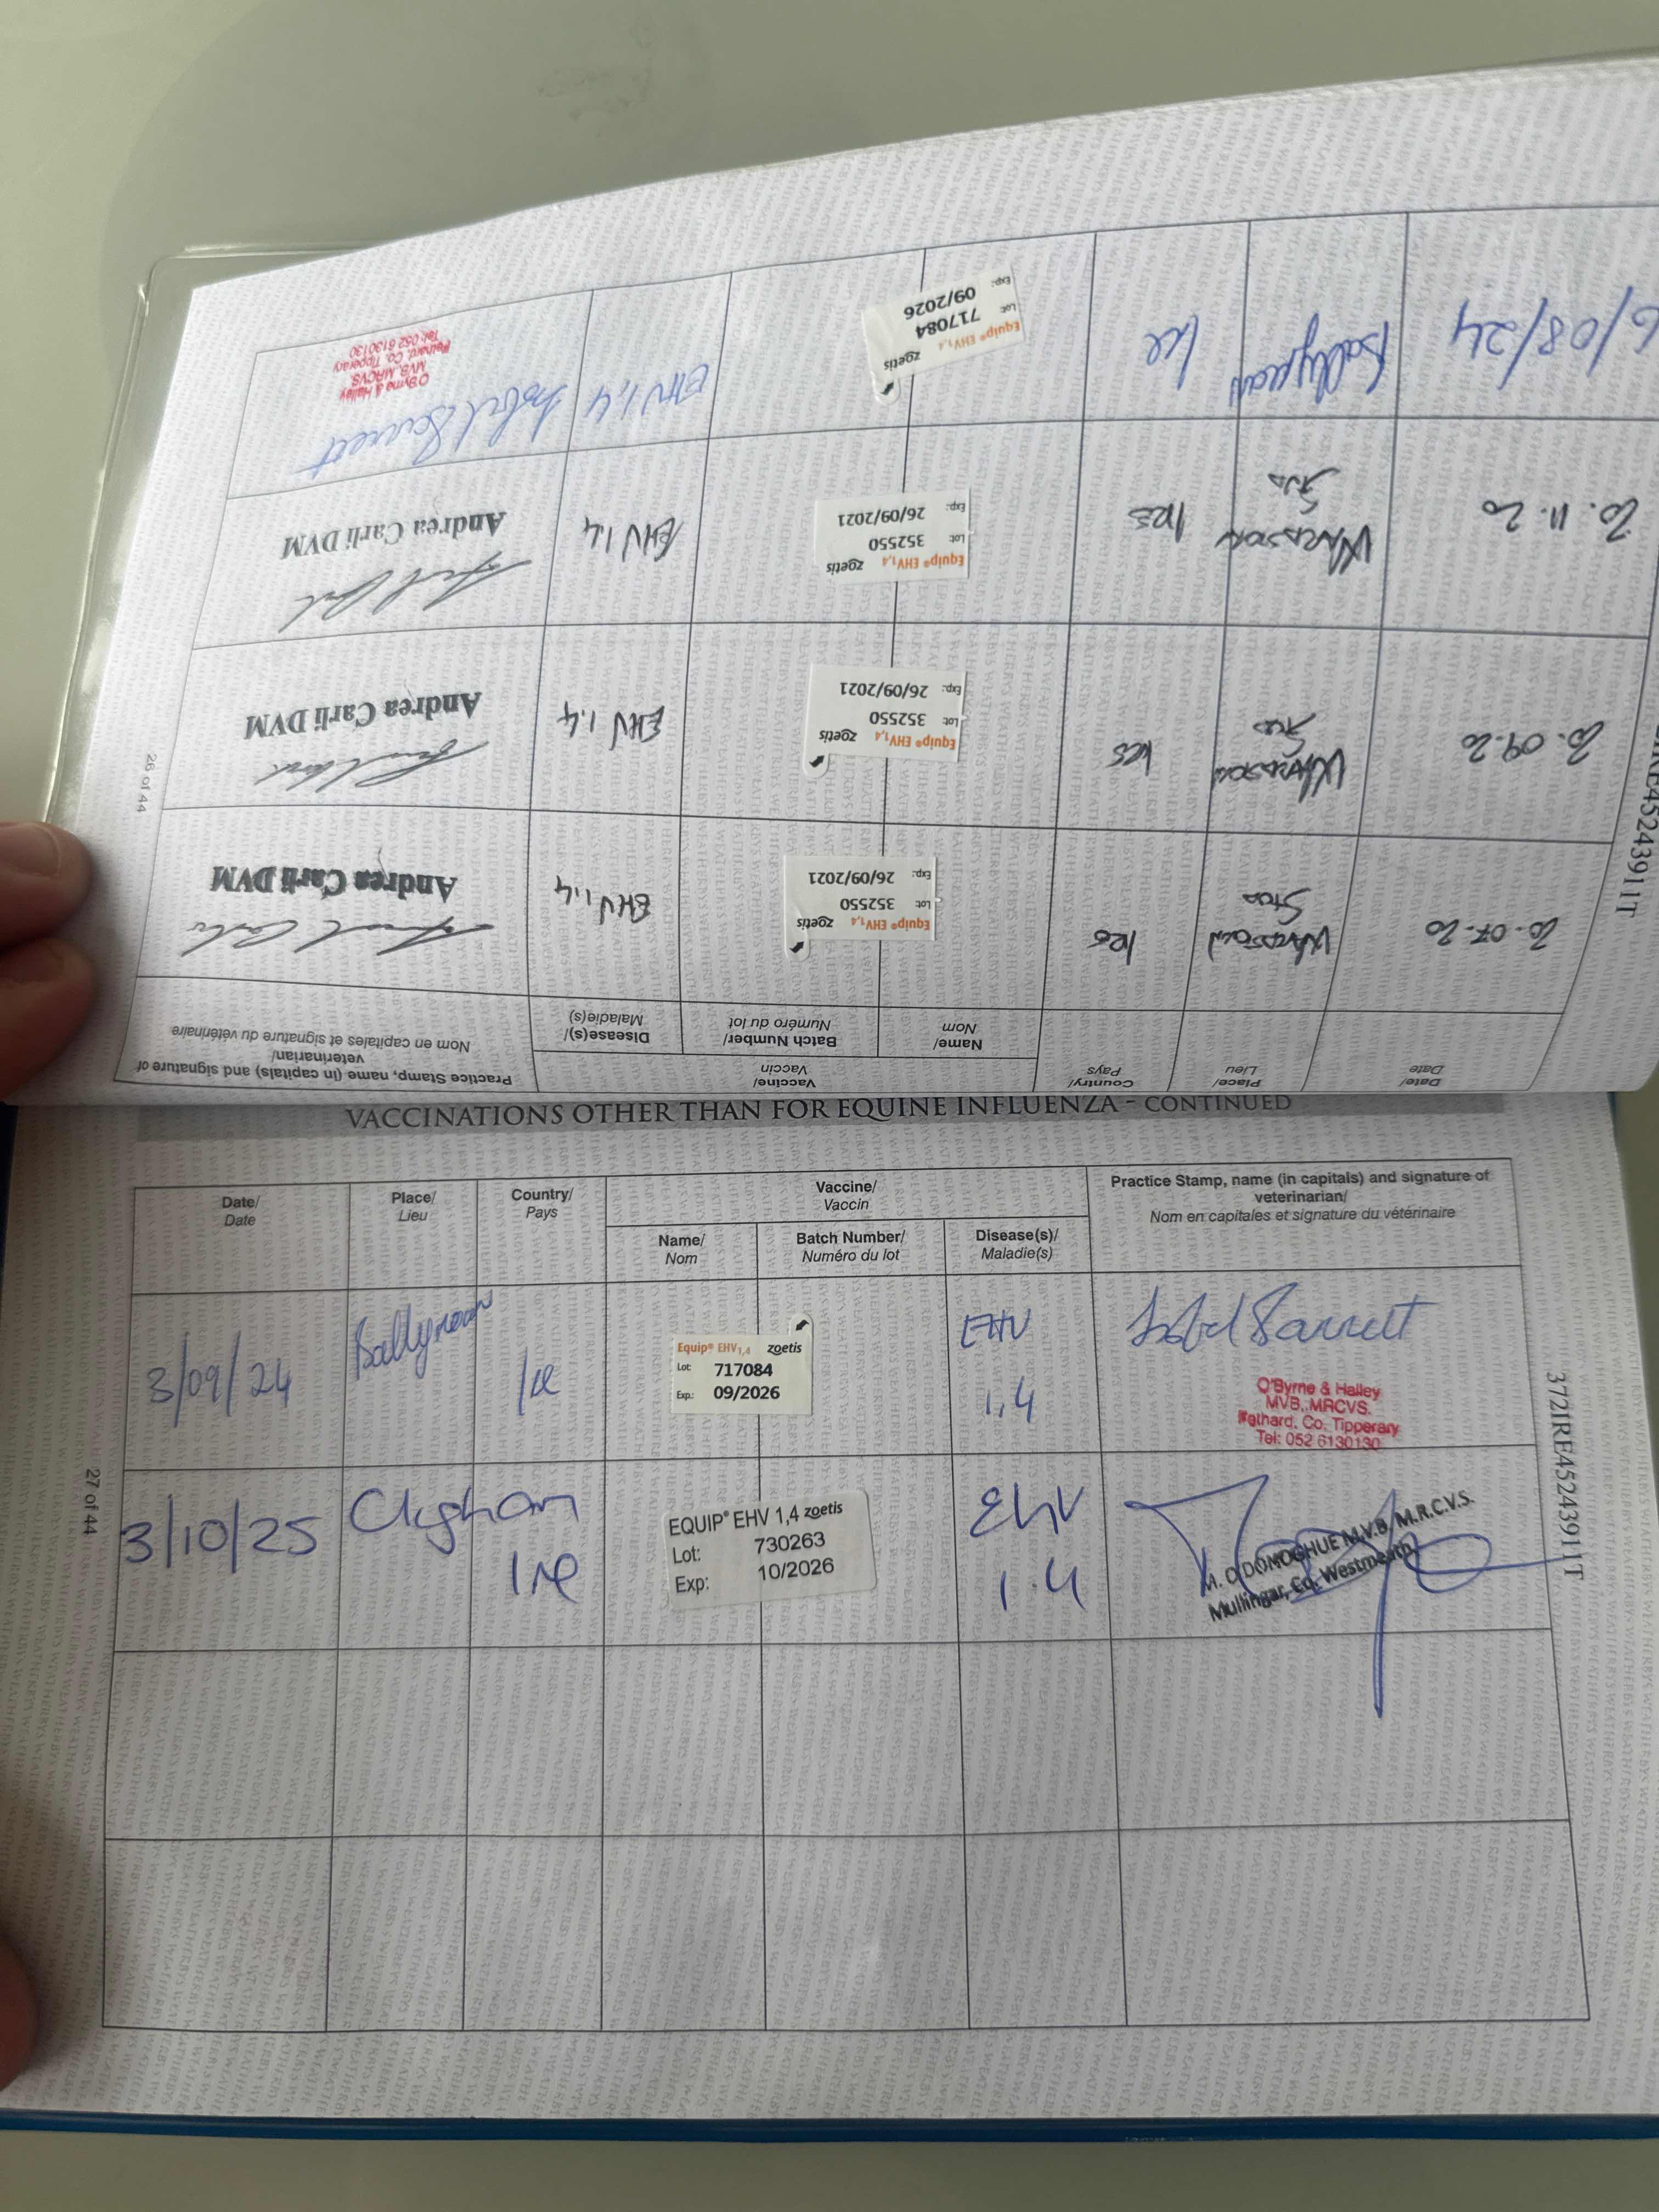 Date/
Date
Place/
Lieu
Country/
Pays
Vaccine/
Vaccin
Name/
Nom
Batch Number/
Numéro du lot
Disease(s)/
Maladie(s)
Practice Stamp, name (in capitals) and signature of
veterinarian/
Nom en capitales et signature du vétérinaire
20.07.20
Stud
IRE
Equip® EHV1,4 zoetis
Lot: 352550
Exp.: 26/09/2021
EHV 1,4
Andrea Carli DVM
20.09.20
Stud
IRE
Equip® EHV1,4 zoetis
Lot: 352550
Exp.: 26/09/2021
EHV 1.4
Andrea Carli DVM
20.11.20
Stud
IRE
Equip® EHV1,4 zoetis
Lot: 352550
Exp.: 26/09/2021
EHV 1,4
Andrea Carli DVM
6/08/24
Ire
Equip® EHV1,4 zoetis
Lot: 717084
Exp.: 09/2026
EHV 1,4
Isobel Barrett
O'Byrne & Halley
MVB, MRCVS.
Fethard, Co. Tipperary
Tel: 052 6130130
26 of 44
IRE45243911T
VACCINATIONS OTHER THAN FOR EQUINE INFLUENZA - CONTINUED
Date/
Date
Place/
Lieu
Country/
Pays
Vaccine/
Vaccin
Name/
Nom
Batch Number/
Numéro du lot
Disease(s)/
Maladie(s)
Practice Stamp, name (in capitals) and signature of
veterinarian/
Nom en capitales et signature du vétérinaire
3/09/24
Ire
Equip® EHV1,4 zoetis
Lot: 717084
Exp.: 09/2026
EHV
1,4
Isobel Barrett
O'Byrne & Halley
MVB, MRCVS.
Fethard, Co. Tipperary
Tel: 052 6130130
3/10/25
Ire
EQUIP® EHV 1,4 zoetis
Lot: 730263
Exp: 10/2026
EHV
1.4
M. O'DONOGHUE M.V.B. M.R.C.V.S.
Mullingar, Co. Westmeath
27 of 44
372IRE45243911T